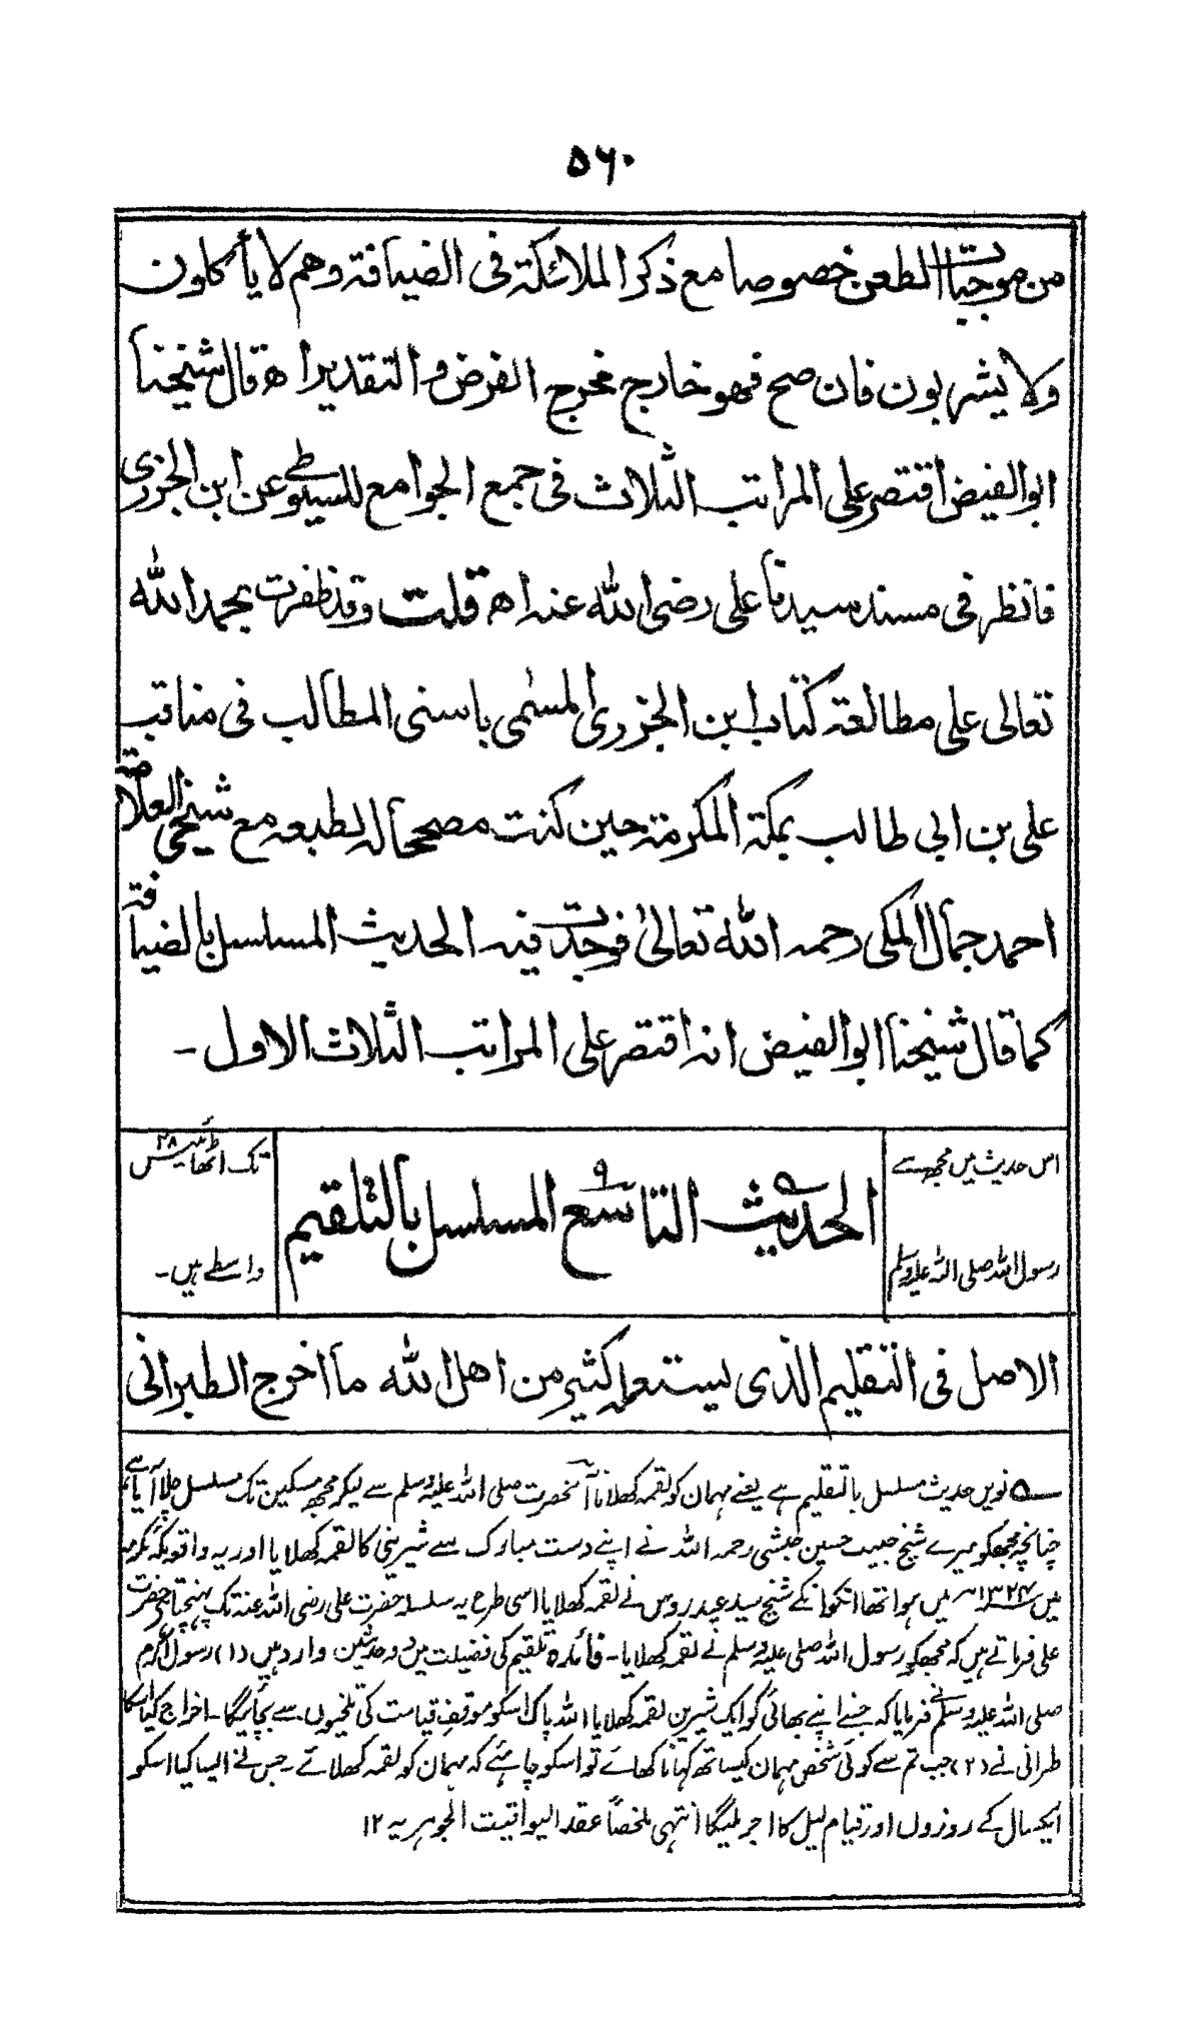 ۵۶۰
من موجبات الطعن خصوصا مع ذكر الملائكة فى الضيافة وهم لا يأكلون
ولا يشربون فان صح فهو خارج مخرج الفرض والتقدير اه قال شيخنا
ابو الفيض اقتصر على المراتب الثلاث فى جمع الجوامع للسيوطى عن ابن الجزرى
فانظر فى مسند سيدنا على رضى الله عنه اه قلت وقد ظفرت بحمد الله
تعالى على مطالعة كتاب ابن الجزرى المسمى باسنى المطالب فى مناقب
على بن ابى طالب بمكة المكرمة حين كنت مصححا له لطبعه مع شيخى العلامة
احمد جمال المكى رحمه الله تعالىٰ فوجدت فيه الحديث المسلسل بالضيافة
كما قال شيخنا ابو الفيض انه اقتصر على المراتب الثلاث الاول ـ
اس حدیث میں مجھ سے
رسول اللہ صلی اللہ علیہ وسلم
الحديث التاسع ۹ المسلسل بالتلقيم
تک اٹھائیس ۲۸
واسطے ہیں۔
الاصل فى التقليم الذى يستعمله كثير من اهل الله ما اخرج الطبرانى
۵ نویں حدیث مسلسل بالتقلیم ہے یعنے مہمان کو لقمہ کھلانا آنحضرت صلی اللہ علیہ وسلم سے لیکر مجھ مسکین تک مسلسل چلا آیا ہے
چنانچہ مجھکو میرے شیخ حبیب حسین حبشی رحمہ اللہ نے اپنے دست مبارک سے شیرینی کا لقمہ کھلایا اور یہ واقعہ مکہ مکرمہ
میں ۱۳۲۴ھ میں ہوا تھا انکو انکے شیخ سید عیدروس نے لقمہ کھلایا اسی طرح یہ سلسلہ حضرت علی رضی اللہ عنہ تک پہنچتا ہے حضرت
علی فرماتے ہیں کہ مجھکو رسول اللہ صلی علیہ وسلم نے لقمہ کھلایا۔ فائدہ تلقیم کی فضیلت میں دو حدیثین وارد ہیں (۱) رسول اکرم
صلی اللہ علیہ وسلم نے فرمایا کہ جسنے اپنے بھائی کو ایک شیرین لقمہ کھلایا اللہ پاک اسکو موقف قیامت کی تلخیوں سے بچائیگا۔ اخراج کیا اسکا
طرانی نے (۲) جب تم سے کوئی شخص مہمان کیساتھ کہانا کھائے تو اسکو چاہئے کہ مہمان کو لقمہ کھلائے جس نے ایسا کیا اسکو
ایکسال کے روزوں اور قیام لیل کا اجر ملیگا انتہی ملخصاً عقد الیواقیت الجوہریہ ۱۲